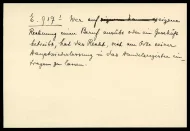 E. 917! Wer auf eigenen Namen eigene
Rechnung einen Beruf ausübt oder ein Geschäft
betreibt, hat das Recht, sich am Orte seiner
Hauptniederlassung in das Handelsregister ein-
tragen zu lassen.